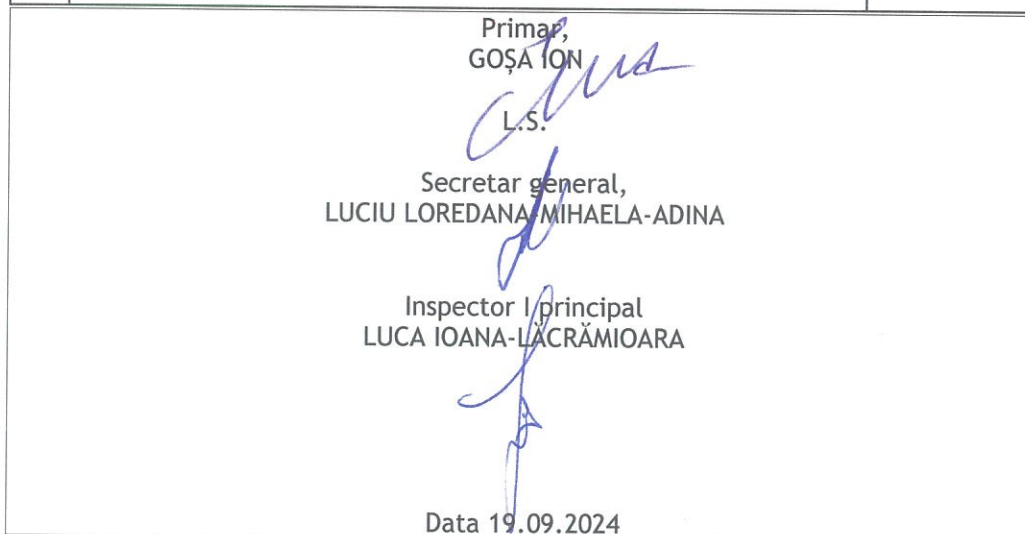 Primar,
GOȘA ION
L.S.
Secretar general,
LUCIU LOREDANA-MIHAELA-ADINA
Inspector I principal
LUCA IOANA-LĂCRĂMIOARA
Data 19.09.2024